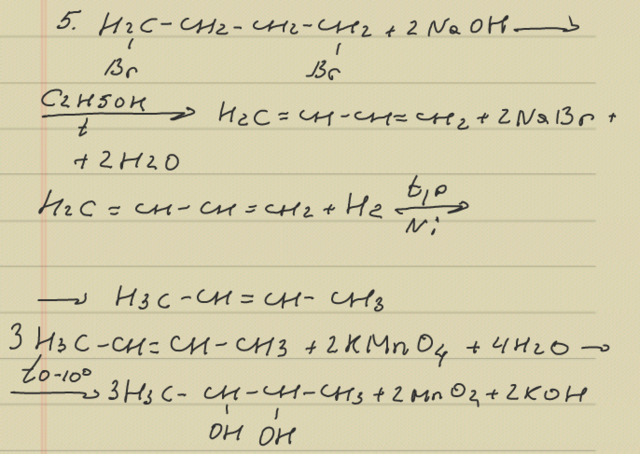 5. H₂C-CH₂-CH₂-CH₂ + 2NaOH ⟶
Br Br
C₂H₅OH
⟶ H₂C=CH-CH=CH₂ + 2NaBr +
t
+ 2H₂O
H₂C=CH-CH=CH₂ + H₂ ⟶
t,p
Ni
⟶ H₃C-CH=CH-CH₃
3H₃C-CH=CH-CH₃ + 2KMnO₄ + 4H₂O ⟶
t0-10°
⟶ 3H₃C-CH-CH-CH₃ + 2MnO₂ + 2KOH
OH OH